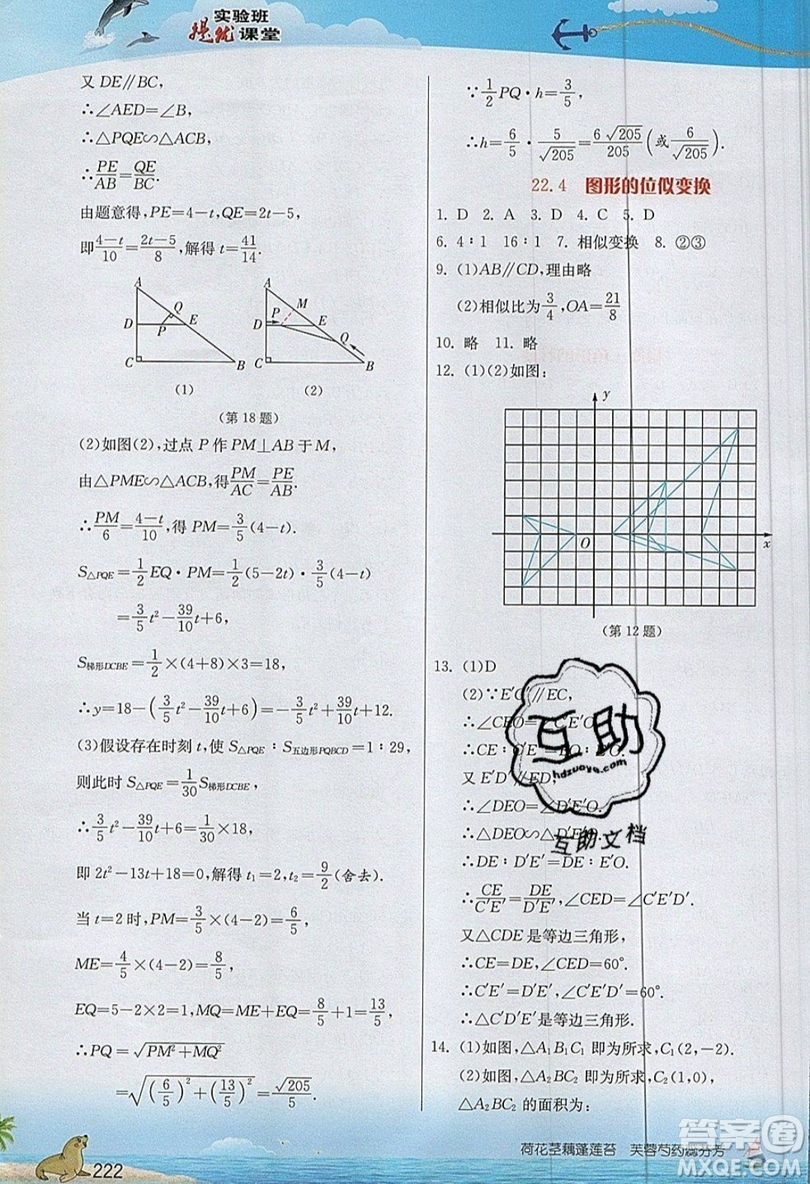 实验班
提优课堂
又DE∥BC,
∴∠AED=∠B,
∴△PQE∽△ACB,
∴PE/AB=QE/BC.
由题意得,PE=4-t,QE=2t-5,
即(4-t)/10=(2t-5)/8,解得t=41/14.
A
D
Q
P
E
C
B
(1)
A
M
D
P
E
Q
C
B
(2)
(第18题)
(2)如图(2),过点P作PM⊥AB于M,
由△PME∽△ACB,得PM/AC=PE/AB,
∴PM/6=(4-t)/10,得PM=3/5(4-t).
S△PQE=1/2EQ·PM=1/2(5-2t)·3/5(4-t)
=3/5t²-39/10t+6,
S梯形DCBE=1/2×(4+8)×3=18,
∴y=18-(3/5t²-39/10t+6)=-3/5t²+39/10t+12.
(3)假设存在时刻t,使S△PQE∶S五边形PQBCD=1∶29,
则此时S△PQE=1/30S梯形DCBE,
∴3/5t²-39/10t+6=1/30×18,
即2t²-13t+18=0,解得t₁=2,t₂=9/2(舍去).
当t=2时,PM=3/5×(4-2)=6/5,
ME=4/5×(4-2)=8/5,
EQ=5-2×2=1,MQ=ME+EQ=8/5+1=13/5,
∴PQ=√(PM²+MQ²)
=√((6/5)²+(13/5)²)=√205/5.
∵1/2PQ·h=3/5,
∴h=6/5·5/√205=6√205/205(或6/√205).
22.4 图形的位似变换
1. D 2. A 3. D 4. C 5. D
6. 4∶1 16∶1 7. 相似变换 8. ②③
9. (1)AB∥CD,理由略
(2)相似比为3/4,OA=21/8
10. 略 11. 略
12. (1)(2)如图:
y
O
x
(第12题)
13. (1)D
(2)∵E'C'∥EC,
∴∠CEO=∠C'E'O.
∴CE∶C'E'=OE∶E'O.
又E'D'∥ED,
∴∠DEO=∠D'E'O.
∴△DEO∽△D'E'O.
∴DE∶D'E'=OE∶E'O.
∴CE/C'E'=DE/D'E',∠CED=∠C'E'D'.
又△CDE是等边三角形,
∴CE=DE,∠CED=60°.
∴C'E'=D'E',∠C'E'D'=60°.
∴△C'D'E'是等边三角形.
14. (1)如图,△A₁B₁C₁即为所求,C₁(2,-2).
(2)如图,△A₂BC₂即为所求,C₂(1,0),
△A₂BC₂的面积为:
互助
hdzuoye.com
互助文档
荷花茎藕蓬莲苔 芙蓉芍药蕊芬芳
222
答案圈
MXQE.COM